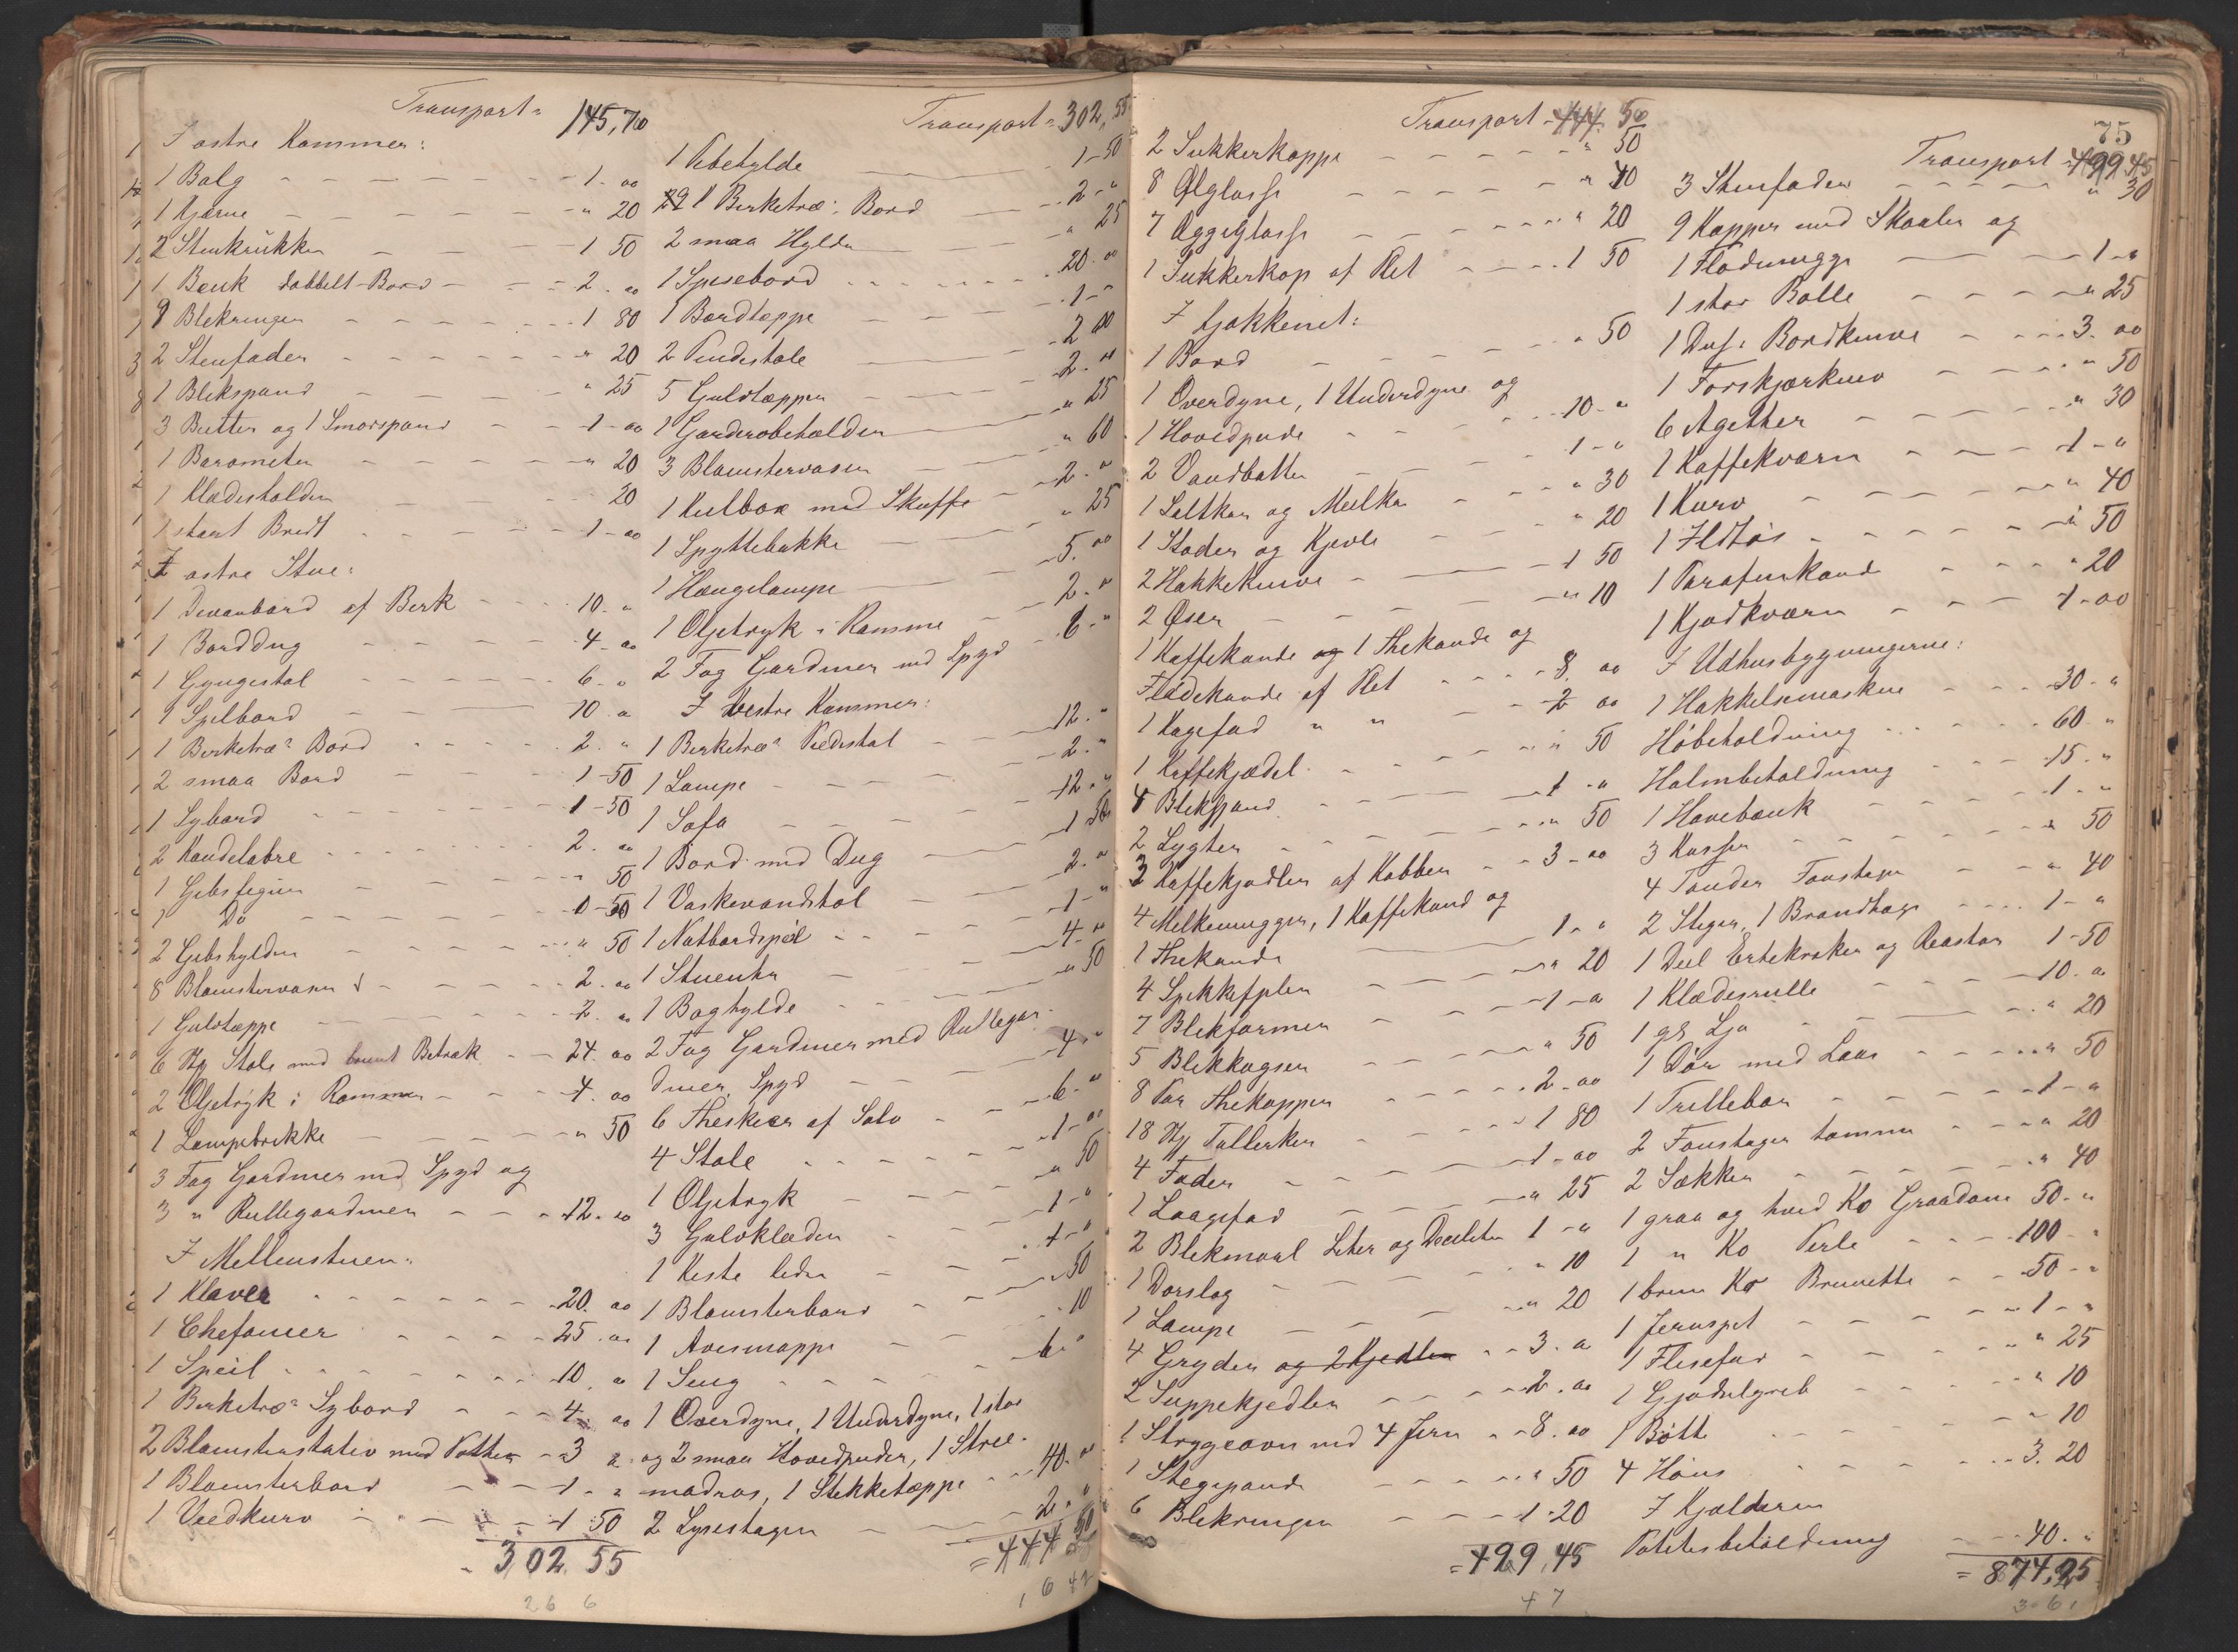 Transport = 145,70
I østre Kammer:
1 Balg - 1-00
1 Kjærne - " 20
2 Stenkrukker - 1 50
1 Bænk dobbelt-Bord - 2.00
9 Blekringer - 1 80
2 Stenfader - " 20
1 Blekspand - " 25
3 Bøtter og 1 Smørspand - 1-00
1 Barometer - " 20
1 Klædesholder - 20
1 stort Bredt - 1-00
I østre Stue:
1 Divanbord af Berk - 10. "
1 Borddug - 4-00
1 Gyngestol - 6-"
1 Spilbord - 10 "
1 Berketræs Bord - 2. "
2 smaa Bord - 1-50
1 Sybord - 1-50
2 Kandelabre - 2. 00
1 Gibsfigur - " 50
1 Do - 0-50
2 Gibshylder - " 50
8 Blomstervaser - 2. 00
1 Gulvtæppe - 2. "
6 Stk Stole med brunt Betræk - 24. 00
2 Oljetryk i Ramme - 4. 00
1 Lampebrikke - " 50
3 Fag Gardiner med Spyd og
3 " Rullegardiner - 12. 00
I Mellemstuen:
1 Klaver - 20. 00
1 Chefonier - 25. 00
1 Speil - 10. "
1 Berketræs Sybord - 4. 00
2 Blomsterstativ med Potter - 3 "
1 Blomsterbord - 1. "
1 Vedkurv - 1 50
302.55
26 6
Transport = 302,55
1 Pibehylde - 1-50
1 Berketræ: Bord - 2-"
2 smaa Hylder - " 25
1 Spisebord - 20.00
1 Bordteppe - 1-"
2 Pindestole - 2 00
5 Gulvtæpper - 2. "
1 Garderobeholder - " 25
3 Blomstervaser - " 60
1 Kulbox med Skuffe - 2. "
1 Spyttebakke - " 25
1 Hængelampe - 5. 00
1 Oljetryk i Ramme - 2. "
2 Fag Gardiner med Spyd - 6-"
I Vestre Kammer:
1 Berketræs Piedestal - 12. "
1 Lampe - 2. "
1 Sofa - 12. "
1 Bord med Dug - 1 50
1 Vaskevandstol - 2. "
1 Natbordspeil - 1-"
1 Stueuhr - 4-"
1 Boghylde - " 50
2 Fag Gardiner med Rullegar-
diner, Spyd - 4 "
6 Theskeer af Sølv - 6-"
4 Stole - 1-00
1 Oljetryk - " 50
3 Gulvklæder - 1-"
1 Keste leder - 1-"
1 Blomsterbord - " 50
1 Avismappe - 10
1 Seng - 6 "
1 Overdyne, 1 Underdyne, 1 stor
og 2 smaa Hovedpuder, 1 Stree-
madras, 1 Stekketæppe - 40. 00
2 Lysestager - 2. "
= 444 50
1 6 42
Transport - 444. 50
2 Sukkerkoppe - " 50
8 Ølglasse - " 40
7 Æggeglasse - " 20
1 Sukkerkop af Plet - 1 50
I Kjøkkenet:
1 Bord - " 50
1 Overdyne, 1 Underdyne og
1 Hovedpude - 10-"
2 Vandbøtter - 1-"
1 Saltkar og Melkar - " 30
1 Stoder og Kjevle - " 20
2 Hakkeknive - 1 50
2 Øser - " 10
1 Kaffekande og 1 Thekande og
Flødekande af Plet - 8. 00
1 Kagefad " " - 2 00
1 Kaffekjedel - " 50
4 Blekspand - 1 "
2 Lygter - " 50
3 Kaffekjedler af Kobber - 3-00
4 Melkemugger, 1 Kaffekand og
1 Thekande - 1-"
4 Spekkefjeler - " 20
7 Blekformer - 1-"
5 Blekkagser - " 50
8 Par Thekopper - 2-00
18 Stk Tallerken - 1 80
4 Fader - 1-00
1 Laagefad - " 25
2 Blekmaal Liter og Deciliter 1-"
1 Dorslag - " 10
1 Lampe - " 20
4 Gryder og 2 Kjedler - 3. "
2 Suppekjedler - 2. 00
1 Strygeovn med 4 Jern - 8. 00
1 Stegepande - " 50
6 Blekringer - 1-20
= 499,45
47
75
Transport = 499,45
3 Stenfader - " 30
9 Kopper med Skaaler og
1 Flødemugge - 1-"
1 stor Bolle - " 25
1 Dus: Bordknive - 3. 00
1 Forskjærkniv - " 50
6 Agetter - " 30
1 Kaffekværn - 1-"
1 Kurv - " 40
1 Ildtøi - " 50
1 Parafinkande - " 20
1 Kjødkværn - 1-00
I Udhusbygningerne:
1 Hakkelsmaskine - 30-"
Høbeholdning - 60. "
Halmbeholdning - 15. "
1 Havebænk - 1. "
3 Kasser - " 50
4 Tønder Foustager - " 40
2 Steger, 1 Brandhage - 1-"
1 Deel Ertekraker og Reastør 1-50
1 Klædesrulle - 10. 00
1 gl. Lja - " 20
1 Dør med Laas - " 50
1 Trillebør - 1-"
2 Foustager tomme - " 20
2 Sækker - " 40
1 graa og hvid Ko Graadane 50-"
1 " Ko Perle - 100-"
1 brun Ko Brunette - 50-"
1 Jernspet - 1-"
1 Flisefad - " 25
1 Gjødelgreb - " 10
1 Bøtte - 10
4 Høns - 3. 20
I Kjælderen
Potetesbeholdning - 40. "
= 874,25
3 6 1